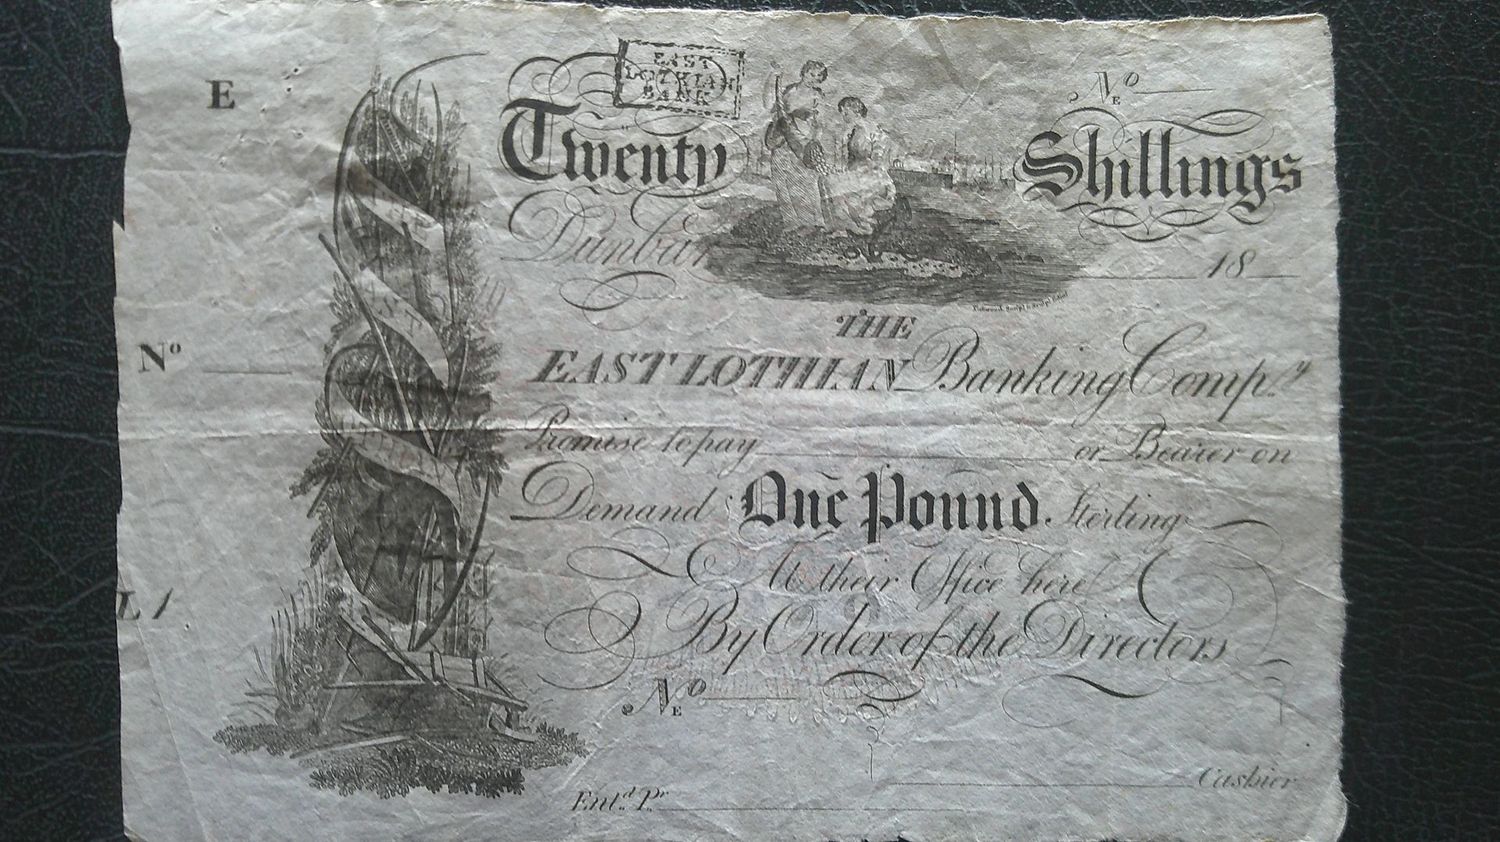 E
EAST
LOTHIAN
BANK
No E
Twenty Shillings
Dunbar 18
THE
EAST LOTHIAN Banking Compy
No
Promise to pay or Bearer on
Demand One Pound Sterling
At their Office here
L 1
By Order of the Directors
No E
Cashier
Entd Pr